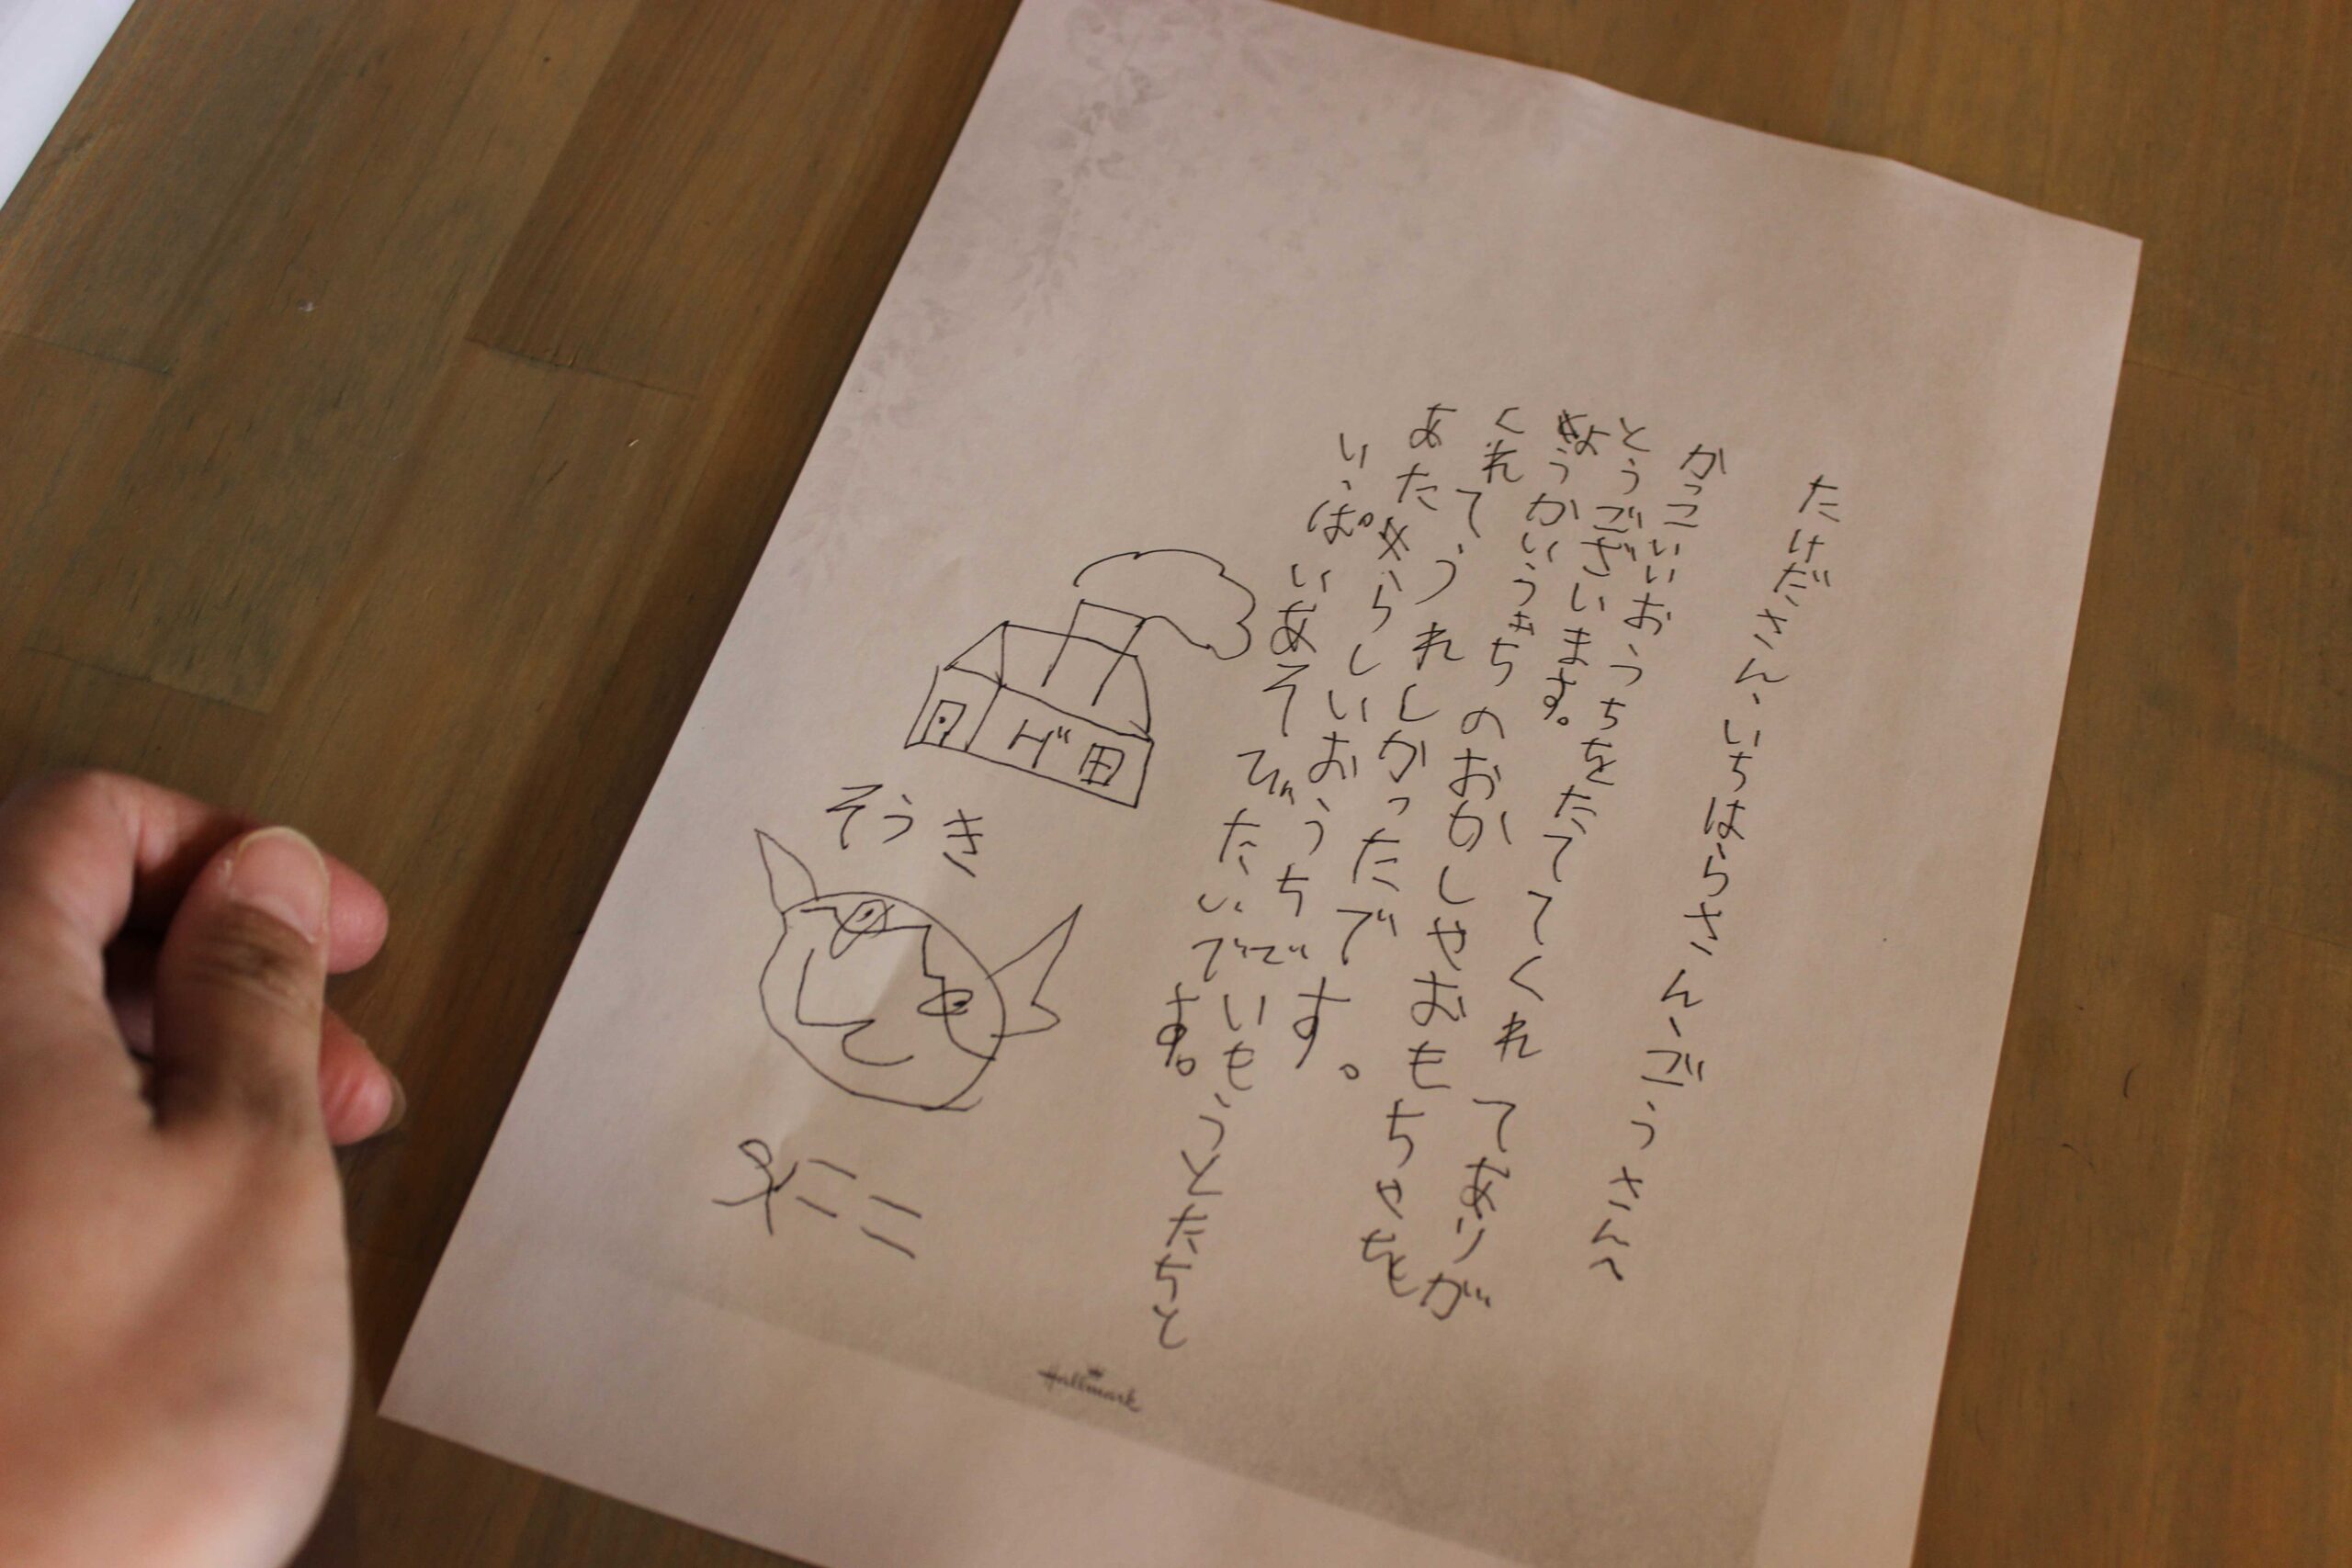 たけださん、いちはらさん、ごうさんへ
かっこいいおうちをたててくれてありが
とうございます。
きょうかいうちのおかしやおもちゃを
くれて、うれしかったです。
あたらしいおうちでいもうとたちと
いっぱいあそびたいです。
そうき
Hallmark